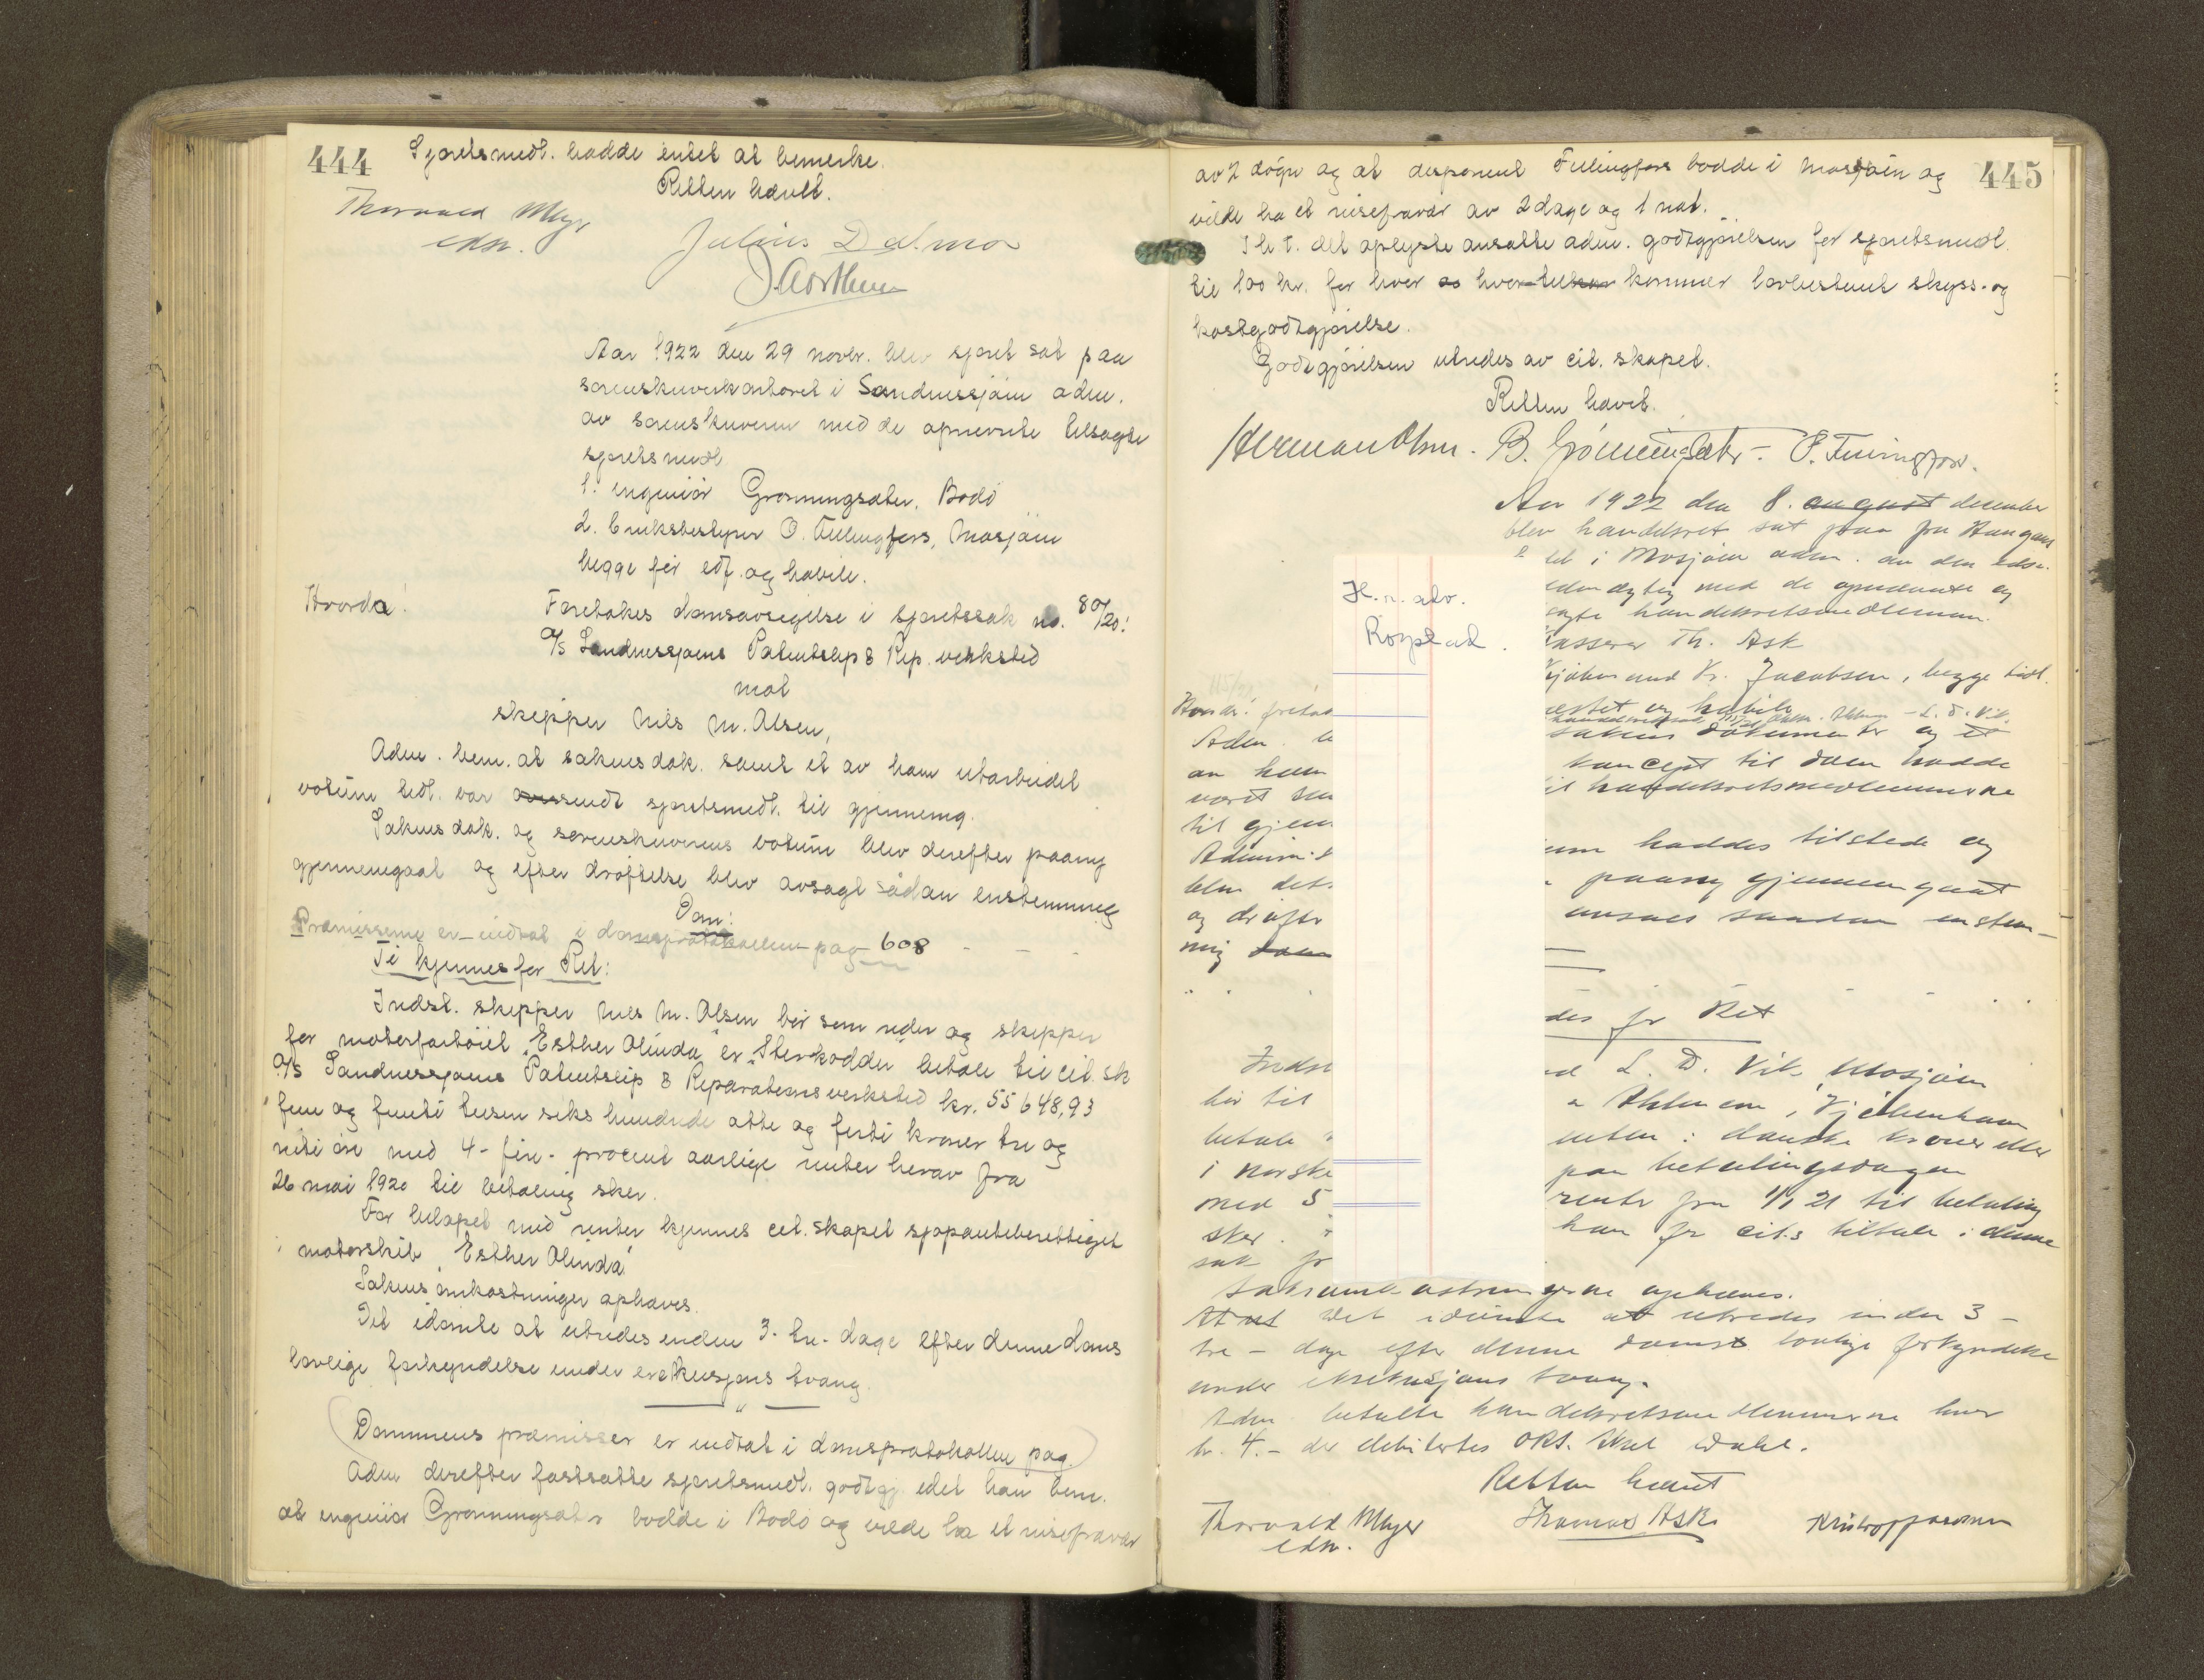 444
Sjøretsmedl. hadde intet at bemerke.
Retten hævet.
Thorvald Meyer
edsv.
Julius Dalmo
Aar 1922 den 29 novbr. blev sjøret sat paa
sorenskriverkontoret i Sandnessjøen adm.
av sorenskriveren med de opnevnte tilsagte
sjøretsmedl
1. ingeniör Grønningsæter, Bodö
2. bruksbestyrer O. Fellingfors, Mosjöen
begge för edf. og habile.
Hvorda!
Foretokes domsavsigelse i sjøretssak no. 80/20:
A/S Sandnessjøens Patentslip & Rep. verksted
mot
skipper Nils M. Olsen,
Adm. bem. at sakens dok. samt et av ham utarbeidet
votum tidl. var sendt sjøretsmedl. til gjennemg.
Sakens dok. og sorenskriverens votum blev derefter paany
gjennemgaat og efter dröftelse blev avsagt sådan enstemmig
Dom:
Præmisserne er indtat i domsprotokollen pag 608
Ti kjennes for Ret:
Indst. skipper Nils M. Olsen bör som reder og skipper
for motorfartöiet "Esther Olinda" ex "Sterkodder" betale til cit. sk
A/S Sandnessjøens Patentslip & Reparationsverksted kr. 55648,93
fem og femti tusen seks hundrede otte og förti kroner tre og
nitti öre med 4- fire- procent aarlige renter herav fra
26 mai 1920 til betaling sker.
For belöpet med renter kjennes cit. skapet sjøpanteberettiget
i motorskib "Esther Olinda"
Sakens omkostninger ophæves.
Det idömte at utredes inden 3- tre- dage efter denne doms
lovlige forkyndelse under exekusjons tvang.
Dommens præmisser er indtat i domsprotokollen pag.
Adm derefter fastsatte sjøretsmedl. godtgj. idet han bem.
at ingeniör Grønningsæter bodde i Bodö og vilde ha et reisefravær
445
av 2 dögn og at disponent Fellingfors bodde i Mosjöen og
vilde ha et reisefravær av 2 dage og 1 nat.
I h. t. det oplyste ansatte adm. godtgjørelsen for sjøretsmedl.
til 100 kr. for hver kommer lovbestemt skyss- og
kostgodtgjørelse.
Godtgjörelsen utredes av cit. skapet.
Retten hævet.
Herman Olsen. B. Grönningsæter - O. Fellingfors.
Aar 1922 den 8. august desember
blev handelsret sat paa fru Haugans
i Mosjöen adm. av den edsv.
med de opnævnte og
handelsretsmedlemmer
Kasserer Th. Ask
Kjöbmand Kr. Jacobsen, begge tidl.
og habile
H. r. adv.
Røyslad.
Hvorda! foretok
sakens dokumenter og et
Adm.
koncept til dom hadde
av ham
været sen
til handelsretsmedlemmerne
til gjen
Adminis
haddes tilstede og
blev det
paany gjennemgaat
og dröfte
avsaes saadan enstem-
mig dom
des for Ret
Indst
L. D. Vik Mosjöen
bör til
i Kjöbenhavn
betale
renter i danske kroner eller
i norske
paa betalingsdagen
med 5
rente fra 1/1 21 til betaling
sker.
han for cit.s tiltale i denne
sak fr
Saksomkostningerne ophæves.
Det idömte at utredes inden 3 -
tre - dage efter denne doms lovlige forkyndelse
under eksekusjons tvang.
Adm. betalte handelsretsmedlemmerne hver
kr. 4.- der debitertes ORS. Axel Dahl.
Retten hævet
Thorvald Meyer
edsv.
Thomas Ask